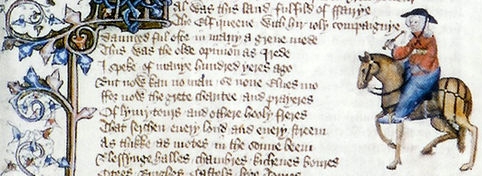 Al was this land fulfild of ffairye
The elf queene with hir ioly compaignye
Daunced ful ofte in many a grene mede
This was the olde opinion as I rede
I speke of manye hundred yeres ago
But now kan no man se none elues mo
ffor now the grete charitee and prayeres
Of lymytours and othere hooly freres
That serchen euery lond and euery streem
As thikke as motes in the sonne beem
Blessynge halles chambres kichenes boures
Citees Burghes Castels hye Toures